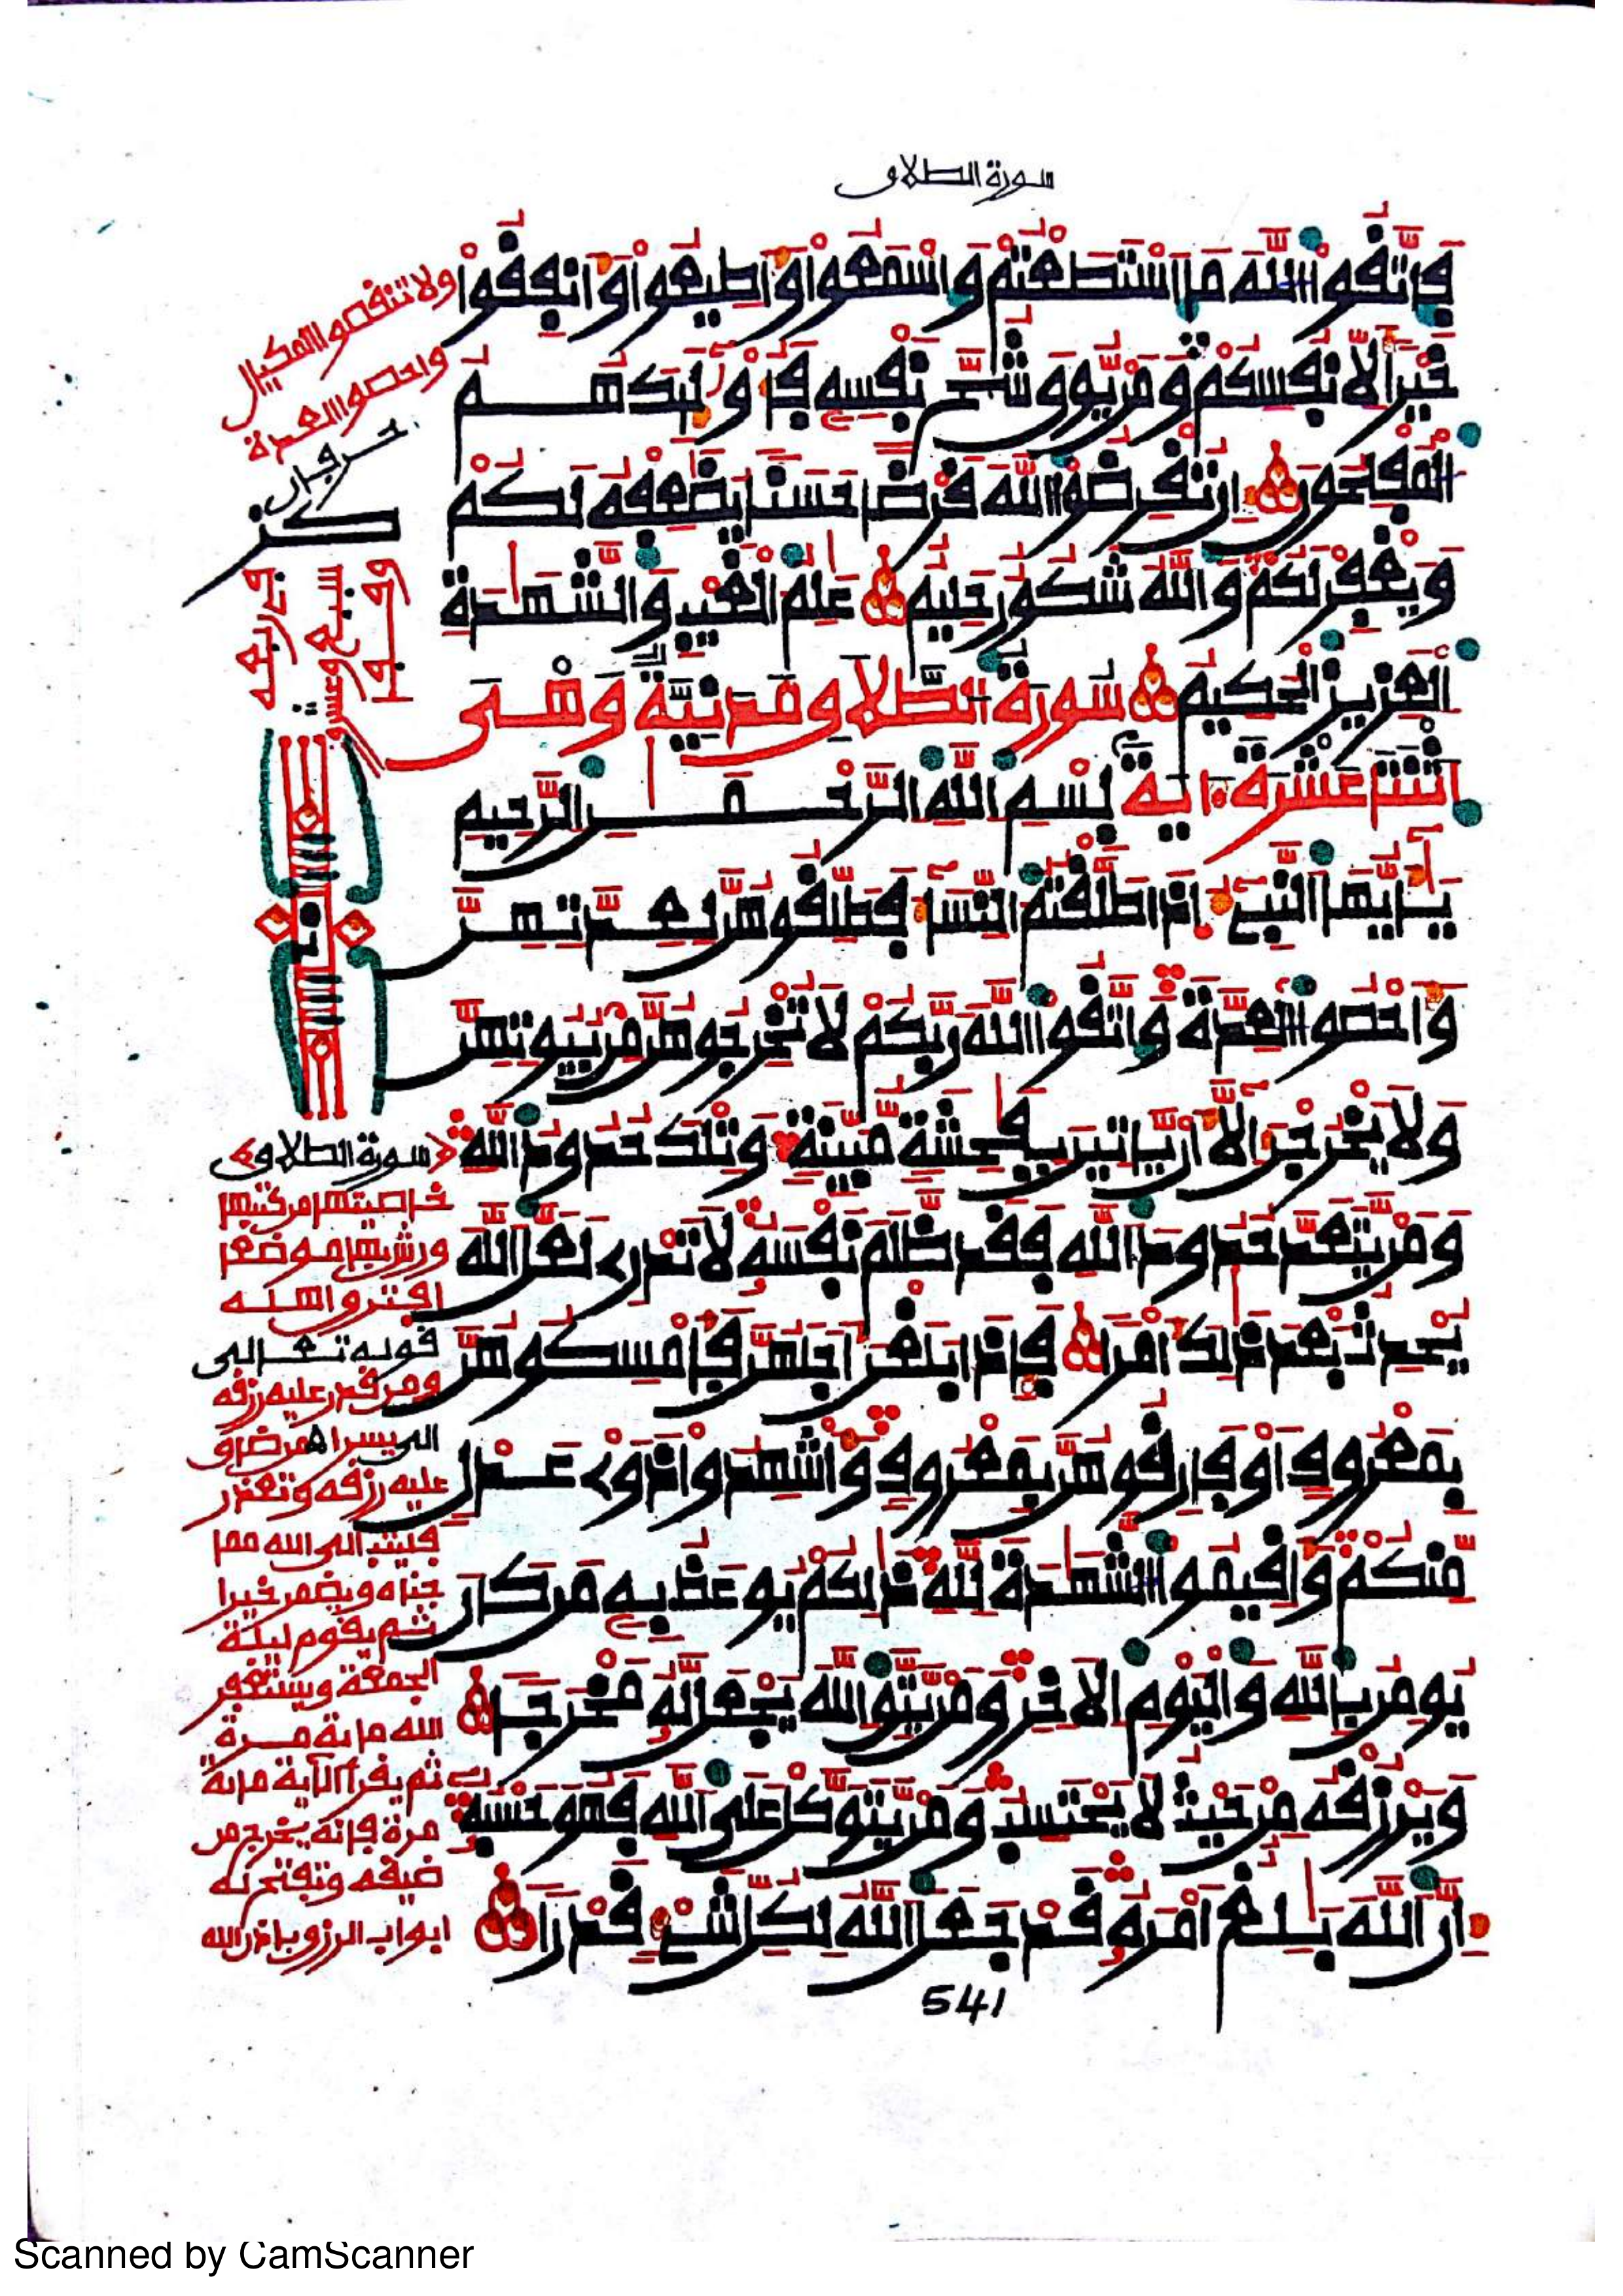 سورة الطلاق
فَاتَّقُوا اللَّهَ مَا اسْتَطَعْتُمْ وَاسْمَعُوا وَأَطِيعُوا وَأَنفِقُوا
خَيْرًا لِأَنفُسِكُمْ وَمَنْ يُوقَ شُحَّ نَفْسِهِ فَأُوْلَٰئِكَ هُمُ
الْمُفْلِحُونَ إِن تُقْرِضُوا اللَّهَ قَرْضًا حَسَنًا يُضَٰعِفْهُ لَكُمْ
وَيَغْفِرْ لَكُمْ وَاللَّهُ شَكُورٌ حَلِيمٌ عَٰلِمُ الْغَيْبِ وَالشَّهَٰدَةِ
الْعَزِيزُ الْحَكِيمُ سُورَةُ الطَّلَاقِ مَدَنِيَّةٌ وَهْىَ
اثْنَتَا عَشْرَةَ ءَايَةً بِسْمِ اللَّهِ الرَّحْمَٰنِ الرَّحِيمِ
يَٰأَيُّهَا النَّبِيءُ إِذَا طَلَّقْتُمُ النِّسَاءَ فَطَلِّقُوهُنَّ لِعِدَّتِهِنَّ
وَأَحْصُوا الْعِدَّةَ وَاتَّقُوا اللَّهَ رَبَّكُمْ لَا تُخْرِجُوهُنَّ مِنْ بُيُوتِهِنَّ
وَلَا يَخْرُجْنَ إِلَّا أَنْ يَأْتِينَ بِفَٰحِشَةٍ مُبَيِّنَةٍ وَتِلْكَ حُدُودُ اللَّهِ
وَمَنْ يَتَعَدَّ حُدُودَ اللَّهِ فَقَد ظَّلَمَ نَفْسَهُ لَا تَدْرِى لَعَلَّ اللَّهَ
يُحْدِثُ بَعْدَ ذَٰلِكَ أَمْرًا فَإِذَا بَلَغْنَ أَجَلَهُنَّ فَأَمْسِكُوهُنَّ
بِمَعْرُوفٍ أَوْ فَارِقُوهُنَّ بِمَعْرُوفٍ وَأَشْهِدُوا ذَوَىْ عَدْلٍ
مِّنكُمْ وَأَقِيمُوا الشَّهَٰدَةَ لِلَّهِ ذَٰلِكُمْ يُوعَظُ بِهِ مَن كَانَ
يُومِنُ بِاللَّهِ وَالْيَوْمِ الْآخِرِ وَمَنْ يَتَّقِ اللَّهَ يَجْعَل لَّهُ مَخْرَجًا
وَيَرْزُقْهُ مِنْ حَيْثُ لَا يَحْتَسِبُ وَمَنْ يَتَوَكَّلْ عَلَى اللَّهِ فَهُوَ حَسْبُهُ
إِنَّ اللَّهَ بَٰلِغٌ أَمْرَهُ قَدْ جَعَلَ اللَّهُ لِكُلِّ شَىْءٍ قَدْرًا
541
ولا تنقصوا المكيال
واحصوا العدة
حرفان
سورة الطلاق
خاصيتها من كتبها
ورش بها موضعا
افترق اهله
قوله تعالى
ومن قدر عليه رزقه
الى يسرا من ضاق
عليه رزقه وتعذر
فليتب الى الله مما
جناه ويضمر خيرا
ثم يقوم ليلة
الجمعة ويستغفر
الله مائة مرة
ثم يقرأ الآية مائة
مرة فإنه يخرج من
ضيقه وتفتح له
ابواب الرزق باذن الله
Scanned by CamScanner